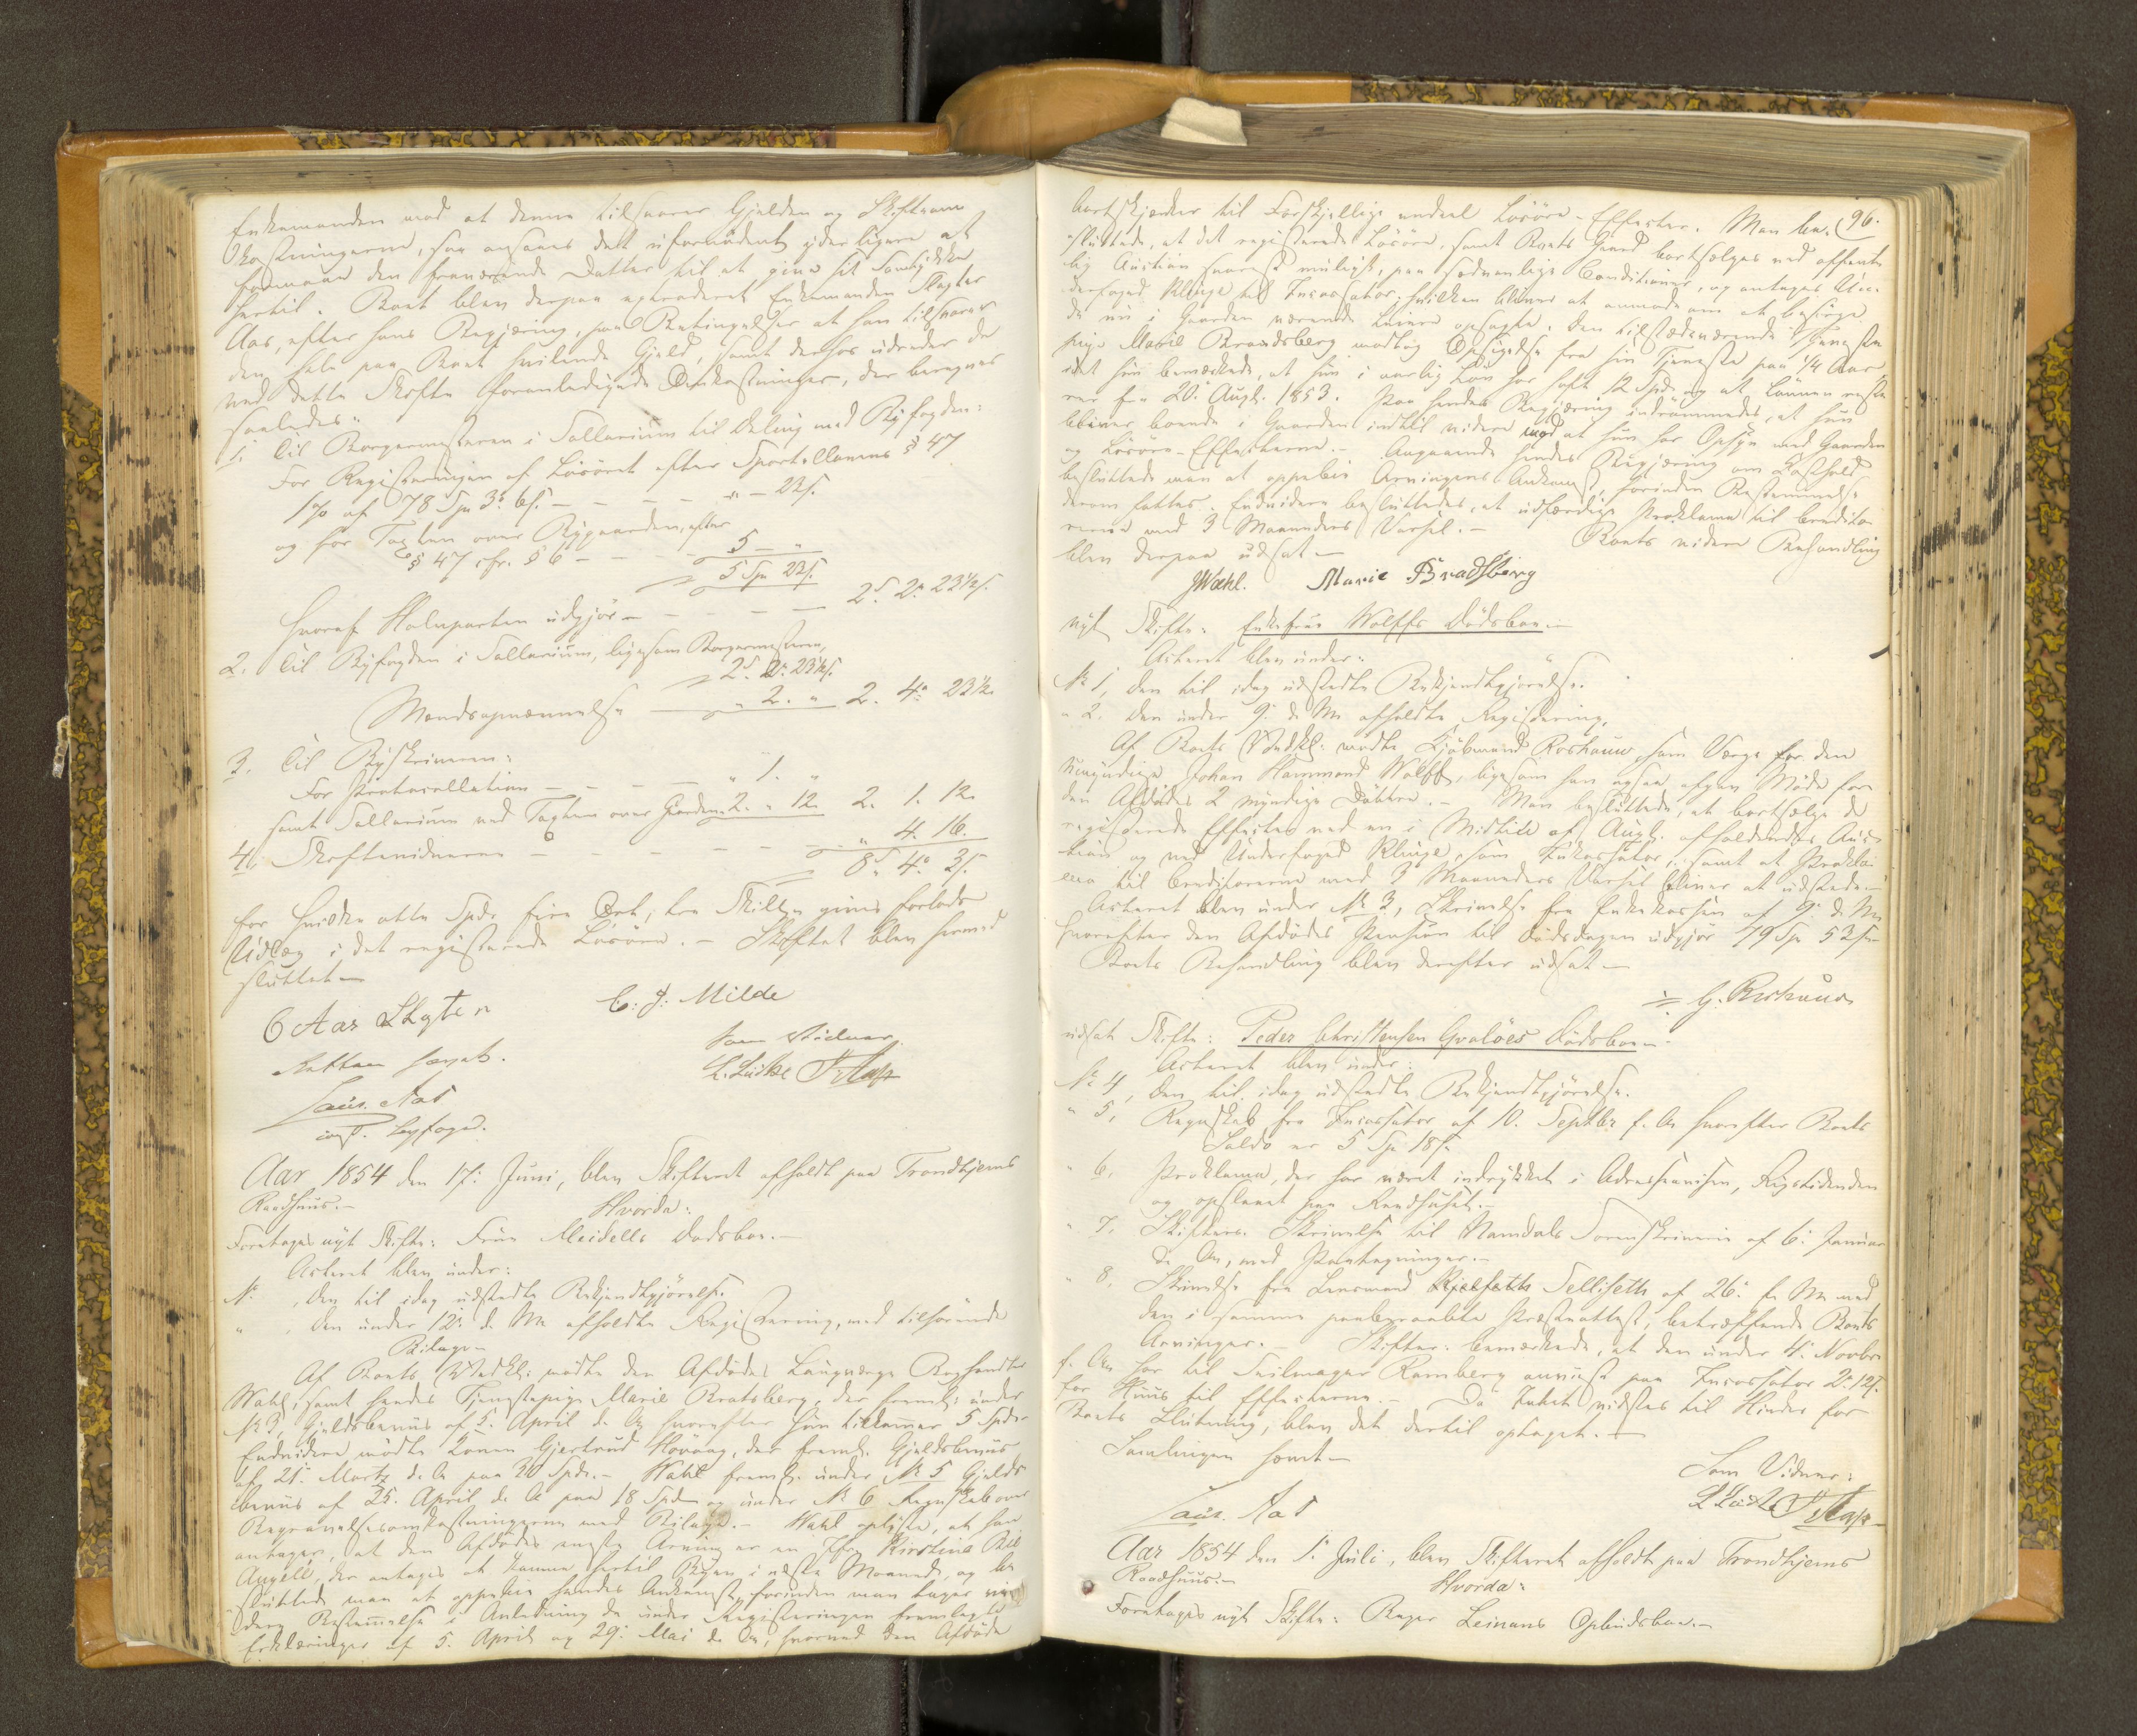 Enkemanden mod at denne tilsvarer Gjelden og Skifteom
kostningerne, saa ansaaes det ufornødent yderligere at
formaae den fraværende Datter til at give sit Samtykke
hertil. Boet blev derpaa extraderet Enkemanden Slagter
Aas, efter hans Begjæring, paa Betingelse at han tilsvarer
den hele paa Boet hvilende Gjeld, samt derhos udreder de
ved dette Skifte foranledigede Omkostninger, der beregnes
saaledes:
1. Til Borgermesteren i Sallarium til Deling med Byfogden:
For Registeringen af Løsøret efter Sportellovens § 47
1% af 78 Spd 3 6 s. - - - - " - 23 s.
og for Taxten over Bygaarden, efter
§ 47 cfr. § 6 - - - 5 - "
5 Spd 23 s.
hvoraf Halvparten udgjør - - - - 2. 2. 23 1/2 s.
2. Til Byfogden i Sallarium, ligesom Borgermesteren,
2. 2. 23 1/2 s.
Mandsopnævnelse " 2. " 2. 4. 23 1/2
3. Til Byskriveren:
For Protocollation - - - " 1. "
samt Sallarium ved Taxten over Gaarden 2. " 12 2. 1. 12
4. Skiftevidnerne - - - - - " 4. 16.
8. 4. 3 s.
for hvilke otte Spd fire Ort, tre Skilling gives forlods
Udlæg i det registerede Løsøre. - Skiftet blev hermed
sluttet -
O Aas Slagter C. J. Milde
Som Vidner
L. Lüdtke
Laur. Aas
const. Byfoged.
Aar 1854 den 17: Juni, blev Skifteret afholdt paa Trondhjems
Raadhuus. - Hvorda:
Foretoges nyt Skifte: Frue Meidells Dødsboe. -
Acteret blev under:
No , den til idag udstedte Bekjendtgjørelse.
" , den under 12: d. M. afholdte Registering, med tilhørende
Bilage -
Af Boets Vedkl: mødte den Afdødes Laugværge Boghandler
Wahl, samt hendes Tjenestepige Marie Bratsberg, der freml: under
No 3, Gjeldsbeviis af 5. April d. A. hvorefter hun tilkommer 5 Spd.
Endvidere mødte Konen Gjertrud Hovaag, der freml. Gjeldsbeviis
af 21: Marts d. A. paa 30 Spd. - Wahl freml. under No 5 Gjelds
beviis af 25. April d. A. paa 18 Spd og under No 6 Regnskab over
Begravelsesomkostningerne med Bilage. - Wahl oplyste, at han
antager, at den Afdødes eneste Arving er en Jfr Kirstine
Angell, der antages at komme hertil Byen i næste Maaned, og be
sluttede man at oppebie hendes Ankomst, forinden man tager
dere Bestemmelse i Anledning de under Registeringen fremlagte
Erklæringer af 5. April og 29: Mai d. A., hvorved den Afdøde
96.
bortskjænker til Forskjellige endeel Løsøre-Effecter. Man be-
sluttede, at det registerede Løsøre, samt Boets Gaard bortsælges ved offent
lig Auction snarest muligt, paa sædvanlige Conditioner, og antages Un-
derfoged Kluge til Incassator, hvilken bliver at anmode om at besørge
de nu i Gaarden værende Leiere opsagte. Den tilstedeværende Tjeneste
pige Marie Brandsberg modtog Opsigelse fra sin Tjeneste paa 1/4 Aar
idet hun bemærkede, at hun i aarlig Løn har havt 12 Spd og at Lønnen reste
rer fra 20: Augt. 1853. Paa hendes Begjæring indrømmedes, at hun
bliver boende i Gaarden indtil videre mod at hun har Opsyn med Gaarden
og Løsøre-Effecterne. - Angaaende hendes Begjæring om Kosthold
besluttede man at oppebie Arvingens Ankomst, forinden Bestemmelse
derom fattes. Endvidere besluttedes, at udfærdige Proklama til Credito
rerne med 3 Maaneders Varsel. - Boets videre Behandling
blev derpaa udsat -
JWahl. Marie Bradsberg
nyt Skifte: Enkefrue Wolffs Dødsboe -
Acteret blev under:
No 1, den til idag udstedte Bekjendtgjørelse.
" 2. den under 9: d. M. afholdte Registering.
Af Boets Vedkl: mødte Kjøbmand Roshauw, som Værge for den
Umyndige Johan Hammond Wolff, ligesom han ogsaa afgav Møde for
den Afdødes 2 myndige Døttre. - Man besluttede, at bortsælge de
registerede Effecter ved en i Midten af Augt. afholdendes Auc-
tion og ved Underfoged Kluge, som Inkassator, samt at Prokla-
ma til Creditorerne med 3 Maaneders Varsel bliver at udstede -
Acteret blev under No 3, Skrivelse fra Enkekassen af 9: d. M.
hvorefter den Afdødes Pension til Dødsdagen udgjør 49 Spd 53 s. -
Boets Behandling blev derefter udsat -
G. Roshauw
udsat Skifte: Peder Christensen Gvaløes Dødsboe -
Acteret blev under:
No 4, den til idag udstedte Bekjendtgjørelse.
" 5, Regnskab fra Incassator af 10. Septbr f. A. hvorefter Boets
Saldo er 5 Spd 18 s.
" 6. Proklama, der har været indrykket i Adresseavisen, Rigstidenden
og opslaaet paa Raadhuset. -
" 7. Skifterets Skrivelse til Namdals Sorenskriver af 6: Januar
d. A., med Paategninger. -
" 8. Skrivelse fra Lensmand Sellisett af 26: f. M. med
den i samme paaberaabte Præsteattest, betræffende Boets
Arvinger. - Skifter: bemærkede, at den under 4: Novbr
f. A. har til Seilmager Ramberg anviist paa Incassator 2. 12 s.
for Huus til Effecterne. - Da Intet vidstes til Hinder for
Boets Slutning, blev det dertil optaget. -
Samlingen hævet -
Som Vidner:
Laur. Aas
Aar 1854 den 1: Juli, blev Skifteret afholdt paa Trondhjems
Raadhuus. - Hvorda:
Foretoges nyt Skifte: Bager Leinans Opbudsboe. -